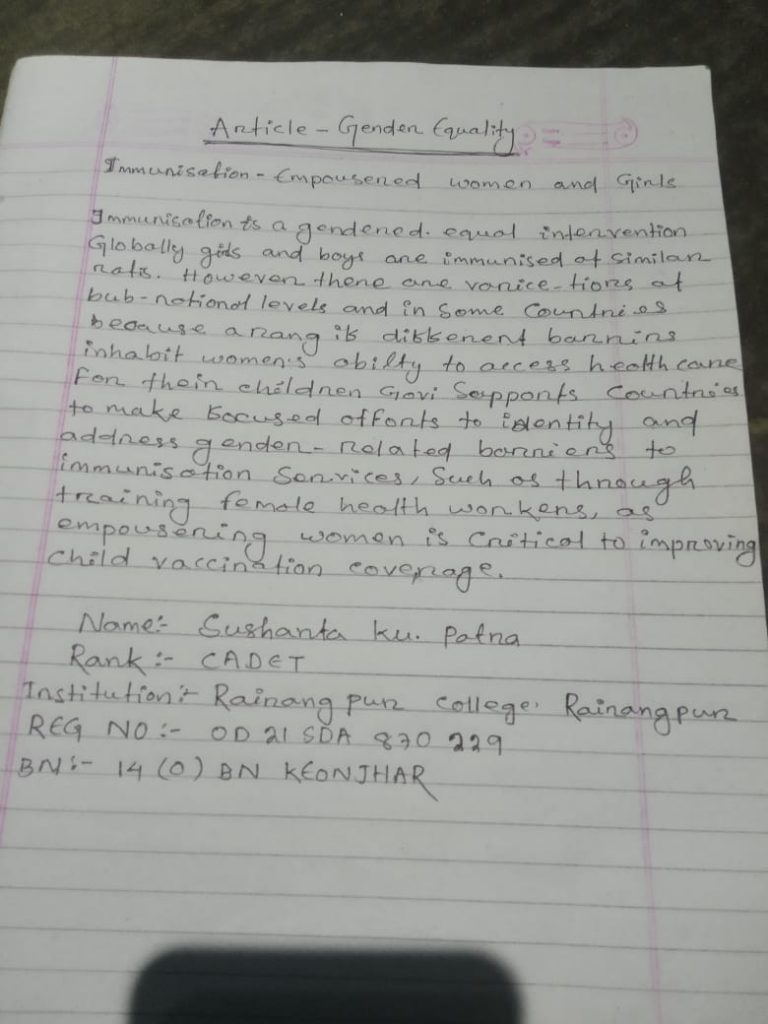 Article - Gender Equality
Immunisation - Empousered women and Girls
Immunisation is a gendered. equal intervention
Globally girls and boys are immunised at similar
rats. However there are varice-tions at
bub-national levels and in Some Countries
because a rang is dikkerent barrins
inhabit women's abilty to access health care
For their children Gavi Supports Countries
to make kocused offorts to identity and
address gender-related barriers to
immunisation Services, Such as through
training female health workers, as
empousering women is Critical to improving
Child vaccination coverage.
Name:- Sushanta Ku. Patra
Rank:- CADET
Institution:- Rairangpur College. Rairangpur
REG NO:- OD 21 SDA 870 229
BN:- 14 (O) BN KEONJHAR